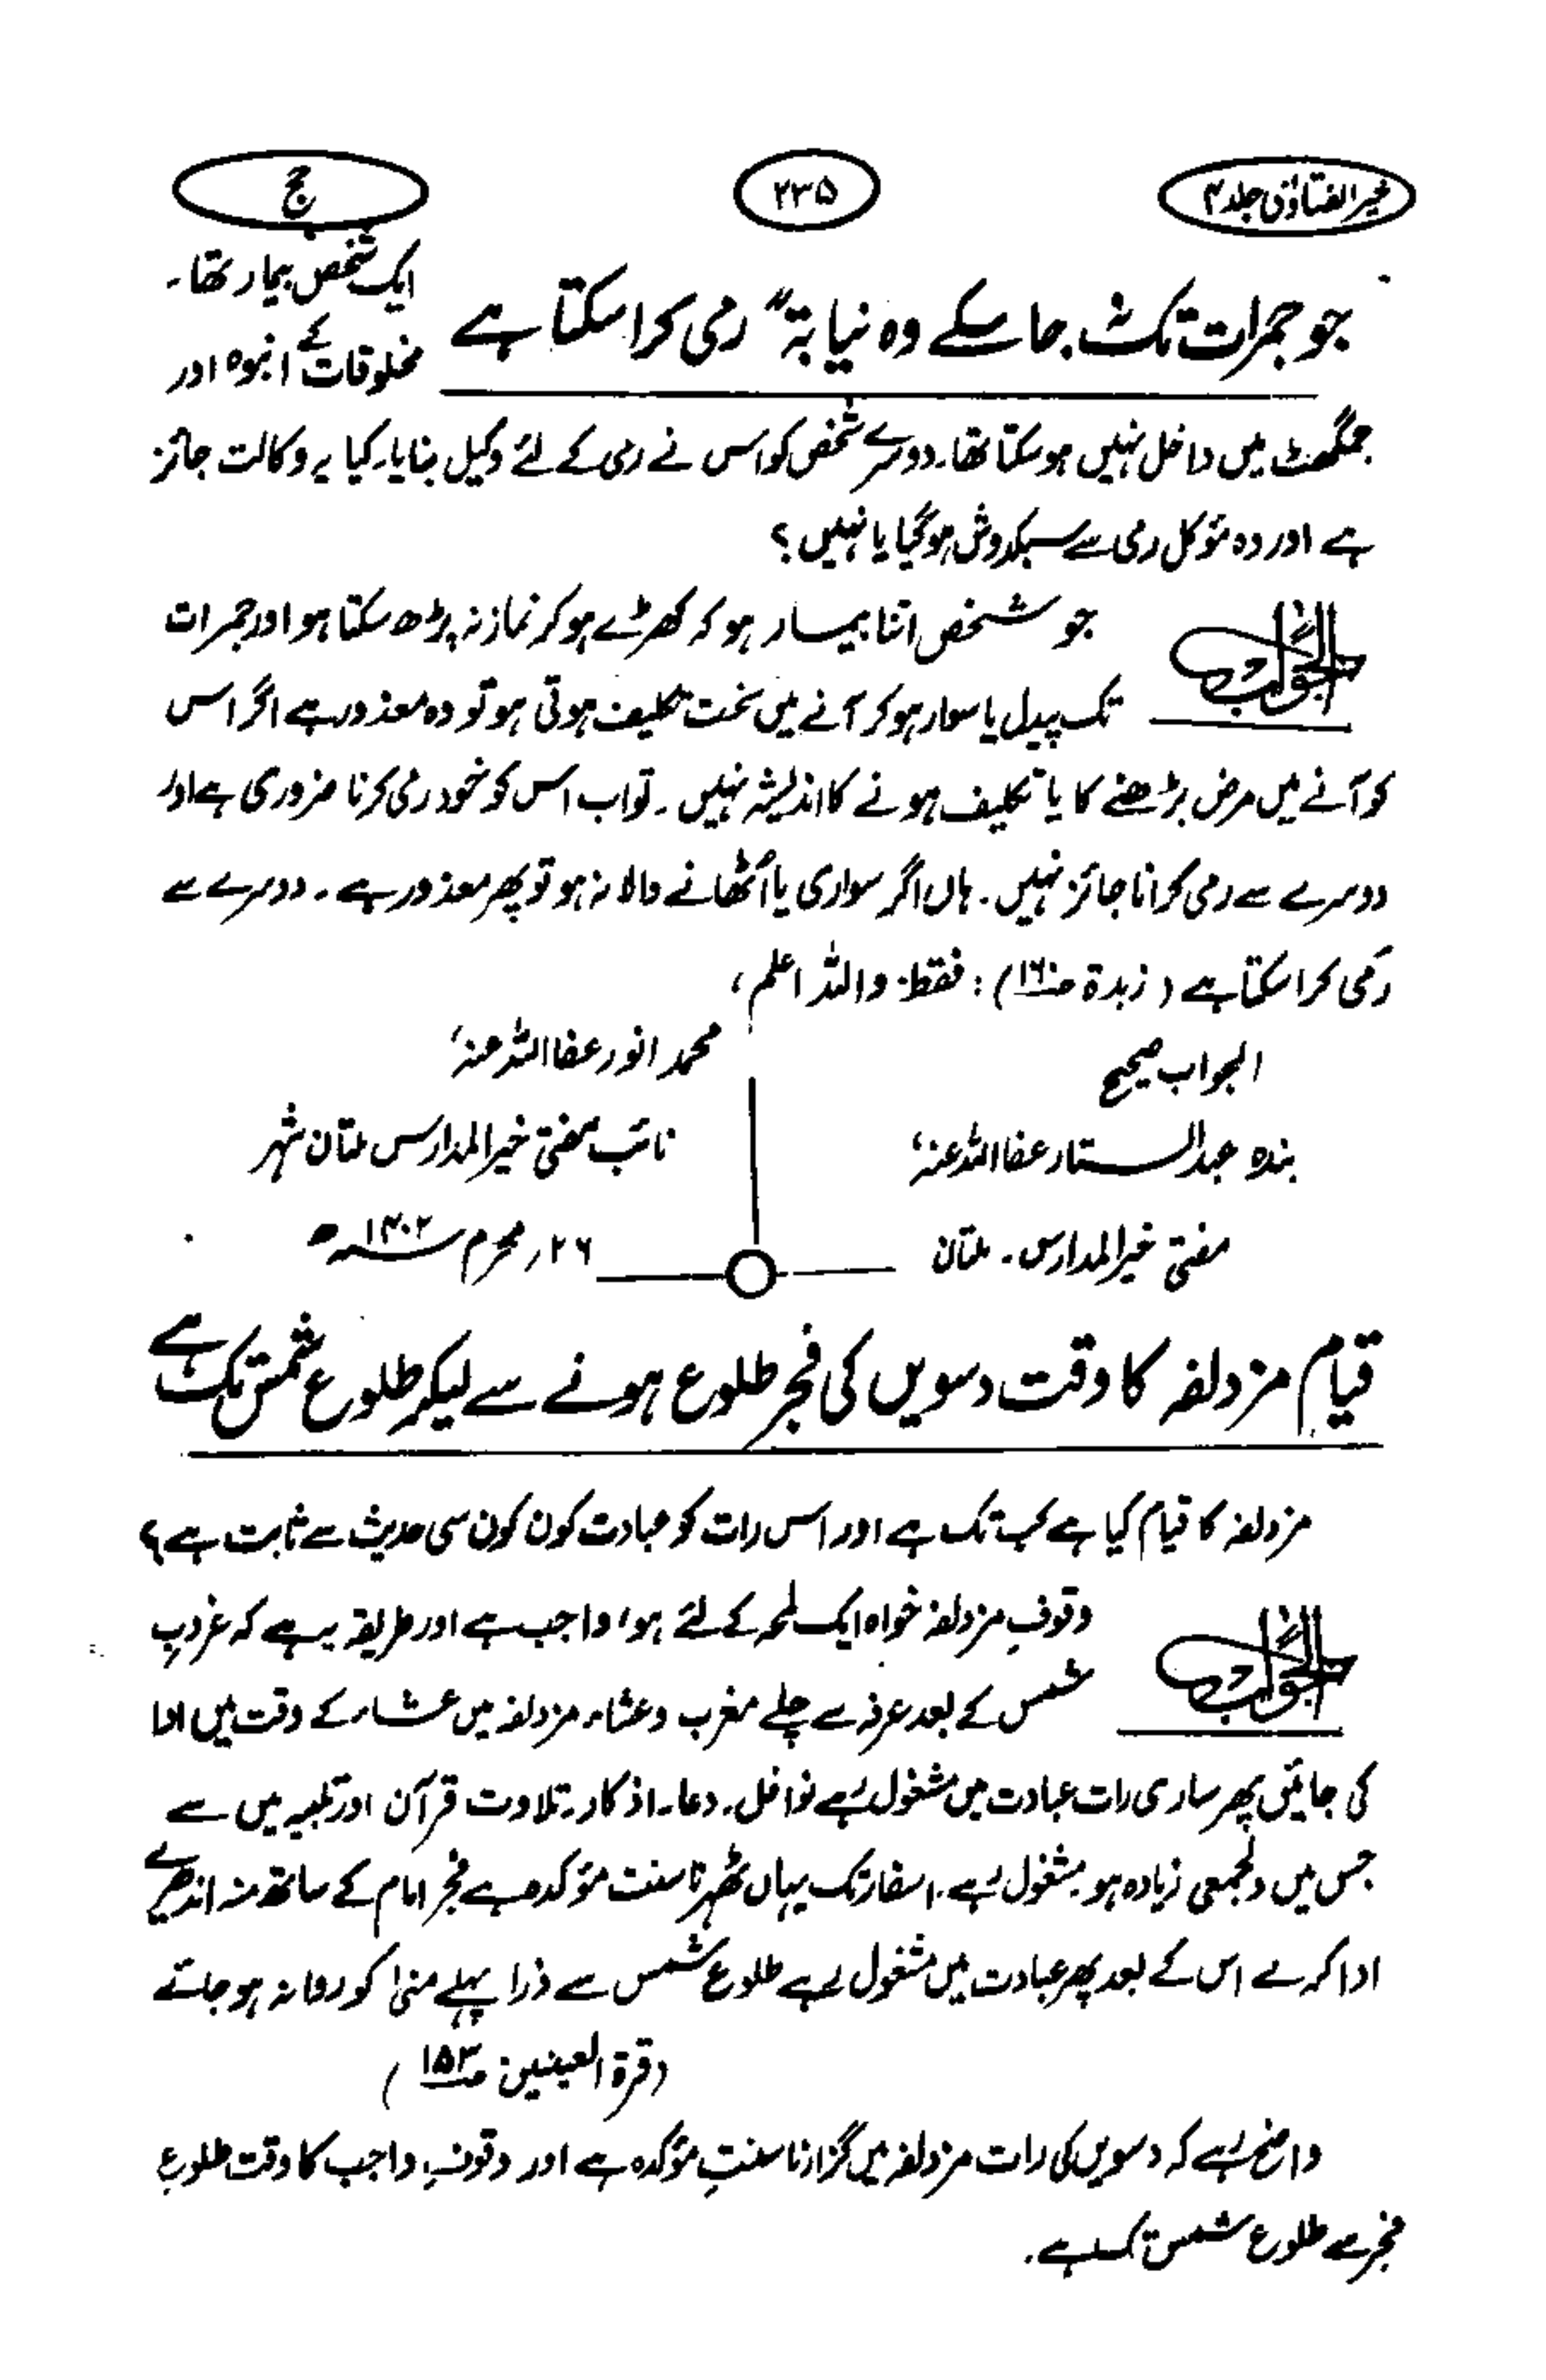 خیر الفتاوٰی جلد ۴
۲۳۵
حج
جو جمرات تک نہ جا سکے وہ نیابۃً رمی کرا سکتا ہے
ایک شخص بیمار تھا۔
مخلوقات کے انبوہ اور
جمگھٹ میں داخل نہیں ہو سکتا تھا۔ دوسرے شخص کو اس نے رمی کے لئے وکیل بنایا۔ کیا یہ وکالت جائز
ہے اور وہ مؤکل رمی سے سبکدوش ہو گیا یا نہیں؟
الجواب
جو شخص اتنا بیمار ہو کہ کھڑے ہو کر نماز نہ پڑھ سکتا ہو اور جمرات
تک پیدل یا سوار ہو کر آنے میں سخت تکلیف ہوتی ہو تو وہ معذور ہے اگر اس
کو آنے میں مرض بڑھنے کا یا تکلیف ہونے کا اندیشہ نہیں۔ تو اب اس کو خود رمی کرنا ضروری ہے اور
دوسرے سے رمی کرانا جائز نہیں۔ ہاں اگر سواری یا اُٹھانے والا نہ ہو تو پھر معذور ہے۔ دوسرے سے
رمی کرا سکتا ہے (زبدۃ صـ۱۶) : فقط۔ واللہ اعلم،
محمد انور عفا اللہ عنہ،
نائب مفتی خیر المدارس ملتان شہر
۲۶؍ محرم ۱۴۰۲ھ
الجواب صحیح
بندہ عبدالستار عفا اللہ عنہ،
مفتی خیر المدارس۔ ملتان
قیام مزدلفہ کا وقت دسویں کی فجر طلوع ہونے سے لیکر طلوع شمس تک ہے
مزدلفہ کا قیام کیا ہے کب تک ہے اور اس رات کو عبادت کون کون سی حدیث سے ثابت ہے؟
الجواب
وقوفِ مزدلفہ خواہ ایک لمحہ کے لئے ہو، واجب ہے اور طریقہ یہ ہے کہ غروبِ
شمس کے بعد عرفہ سے چلے مغرب و عشاء مزدلفہ میں عشاء کے وقت میں ادا
کی جائیں پھر ساری رات عبادت میں مشغول رہے نوافل۔ دعا۔ اذکار۔ تلاوت قرآن اور تلبیہ میں سے
جس میں دلجمعی زیادہ ہو۔ مشغول رہے۔ اسفار تک یہاں ٹھہرنا سنت مؤکدہ ہے فجر امام کے ساتھ منہ اندھیرے
ادا کرے اس کے بعد پھر عبادت میں مشغول رہے طلوع شمس سے ذرا پہلے منیٰ کو روانہ ہو جائے
(قرۃ العینین صـ۱۵۳)
واضح رہے کہ دسویں کی رات مزدلفہ میں گزارنا سنتِ مؤکدہ ہے اور وقوفِ واجب کا وقت طلوعِ
فجر سے طلوع شمس تک ہے۔